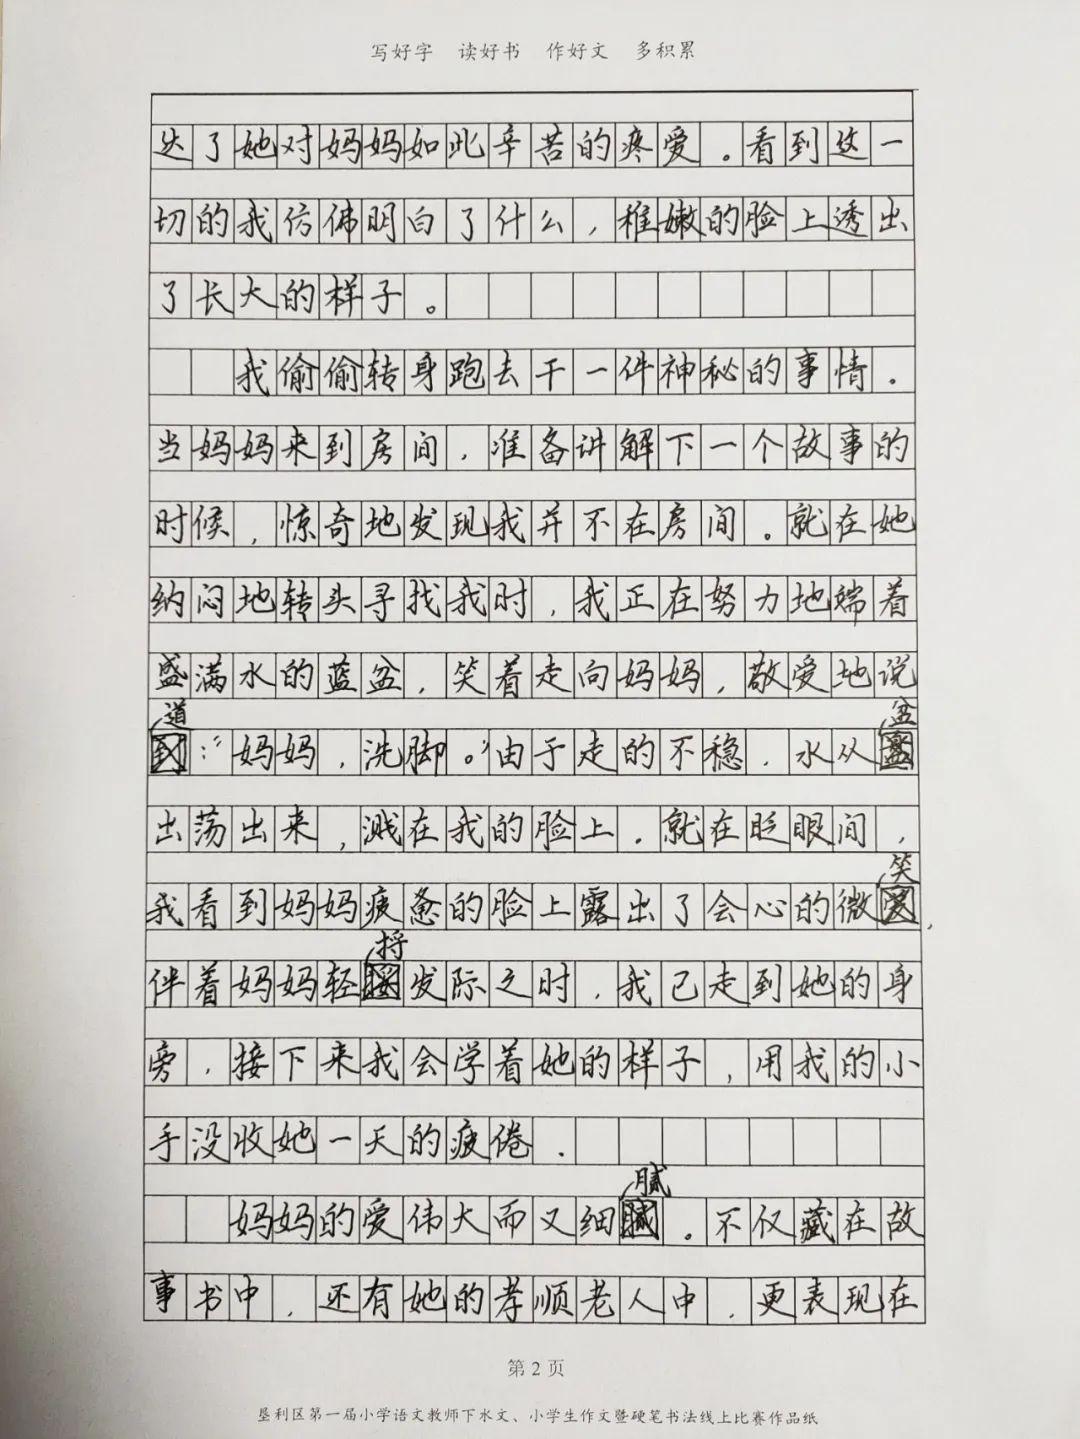 写好字 读好书 作好文 多积累
达了她对妈妈如此辛苦的疼爱。看到这一
切的我仿佛明白了什么，稚嫩的脸上透出
了长大的样子。
我偷偷转身跑去干一件神秘的事情。
当妈妈来到房间，准备讲解下一个故事的
时候，惊奇地发现我并不在房间。就在她
纳闷地转头寻找我时，我正在努力地端着
盛满水的蓝盆，笑着走向妈妈，敬爱地说
道：“妈妈，洗脚。”由于走的不稳，水从盆
出荡出来，溅在我的脸上。就在眨眼间，
我看到妈妈疲惫的脸上露出了会心的微笑，
伴着妈妈轻捋发际之时，我已走到她的身
旁，接下来我会学着她的样子，用我的小
手没收她一天的疲倦．
妈妈的爱伟大而又细腻。不仅藏在故
事书中，还有她的孝顺老人中，更表现在
第2页
垦利区第一届小学语文教师下水文、小学生作文暨硬笔书法线上比赛作品纸